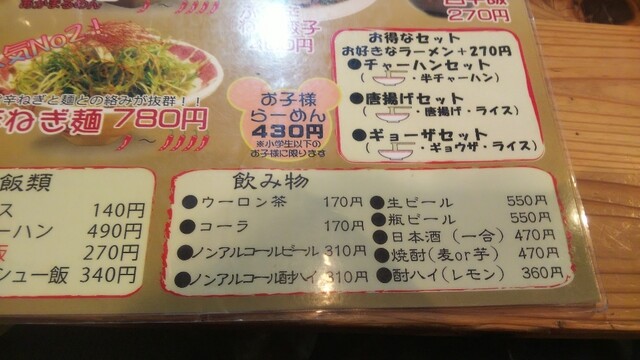 270円
人気No2！
辛ねぎと麺との絡みが抜群！！
辛ねぎ麺 780円
お子様
らーめん
430円
※小学生以下の
お子様に限ります
お得なセット
お好きなラーメン＋270円
●チャーハンセット
（ ・半チャーハン）
●唐揚げセット
（ ・唐揚げ・ライス）
●ギョーザセット
（ ・ギョウザ・ライス）
飯類
ス 140円
ーハン 490円
飯 270円
シュー飯 340円
飲み物
●ウーロン茶 170円
●コーラ 170円
●ノンアルコールビール 310円
●ノンアルコール酎ハイ 310円
●生ビール 550円
●瓶ビール 550円
●日本酒（一合） 470円
●焼酎（麦or芋） 470円
●酎ハイ（レモン） 360円